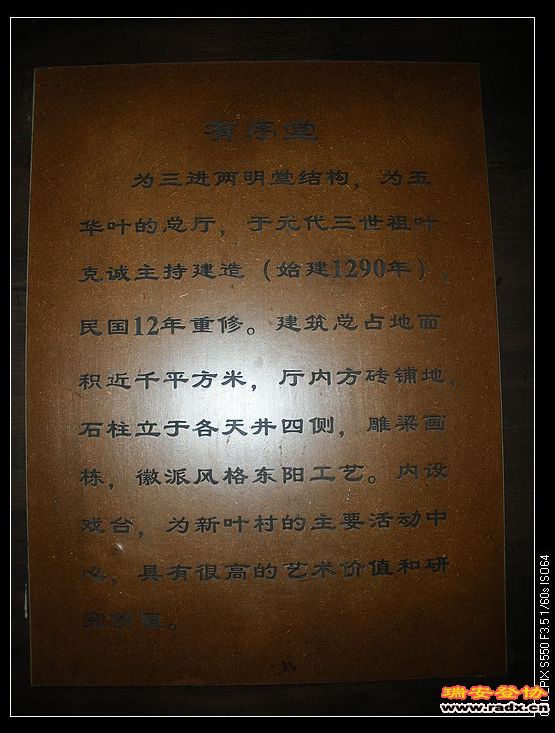 有序堂
为三进两明堂结构，为玉
华叶的总厅，于元代三世祖叶
克诚主持建造（始建1290年），
民国12年重修。建筑总占地面
积近千平方米，厅内方砖铺地，
石柱立于各天井四侧，雕梁画
栋，徽派风格东阳工艺。内设
戏台，为新叶村的主要活动中
心，具有很高的艺术价值和研
究价值。
PIX S550 F3.5 1/60s ISO64
瑞安登协
www.radx.cn